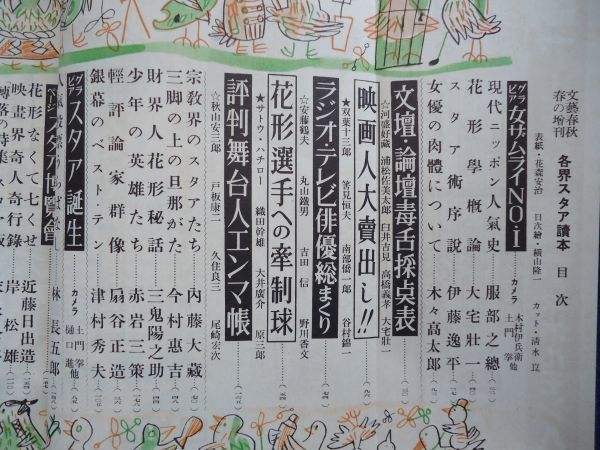 文藝春秋
春の増刊
各界スタア讀本 目次
表紙・花森安治 目次繪・横山隆一 カット・清水崑
グラビア 女ザムライNO・1 カメラ 木村伊兵衛 土門拳他
現代ニッポン人氣史 服部之總
花形學概論 大宅壯一
スタア術序説 伊藤逸平
女優の肉體について 木々高太郎
文壇・論壇毒舌採点表
☆河盛好藏 浦松佐美太郎 臼井吉見 高橋義孝 大宅壯一
映画人大賣出し!!
★双葉十三郎 筈見恒夫 南部僑一郎 谷村錦一
ラジオ・テレビ俳優総まくり
☆安藤鶴夫 丸山鐵男 吉田信 野川香文
花形選手への牽制球
★サトウ・ハチロー 織田幹雄 大井廣介 原三郎
評判舞台人エンマ帳
☆秋山安三郎 戸板康二 久住良三 尾崎宏次
宗教界のスタアたち 内藤大藏
三脚の上の旦那がた 今村惠吉
財界人花形秘話 三鬼陽之助
少年の英雄たち 赤岩三策
輕評論家群像 扇谷正造
銀幕のベストテン 津村秀夫
グラビア スタア誕生 カメラ 土門拳 樋口進他
スタア博覽會 林長五郎
花形なくて七くせ 近藤日出造
映畫界奇人行錄 岸松雄